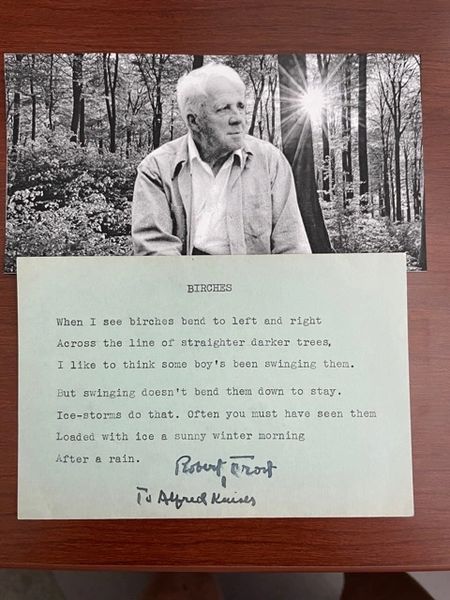 BIRCHES
When I see birches bend to left and right
Across the line of straighter darker trees,
I like to think some boy's been swinging them.
But swinging doesn't bend them down to stay.
Ice-storms do that. Often you must have seen them
Loaded with ice a sunny winter morning
After a rain.
Robert Frost
To Alfred Kaiser